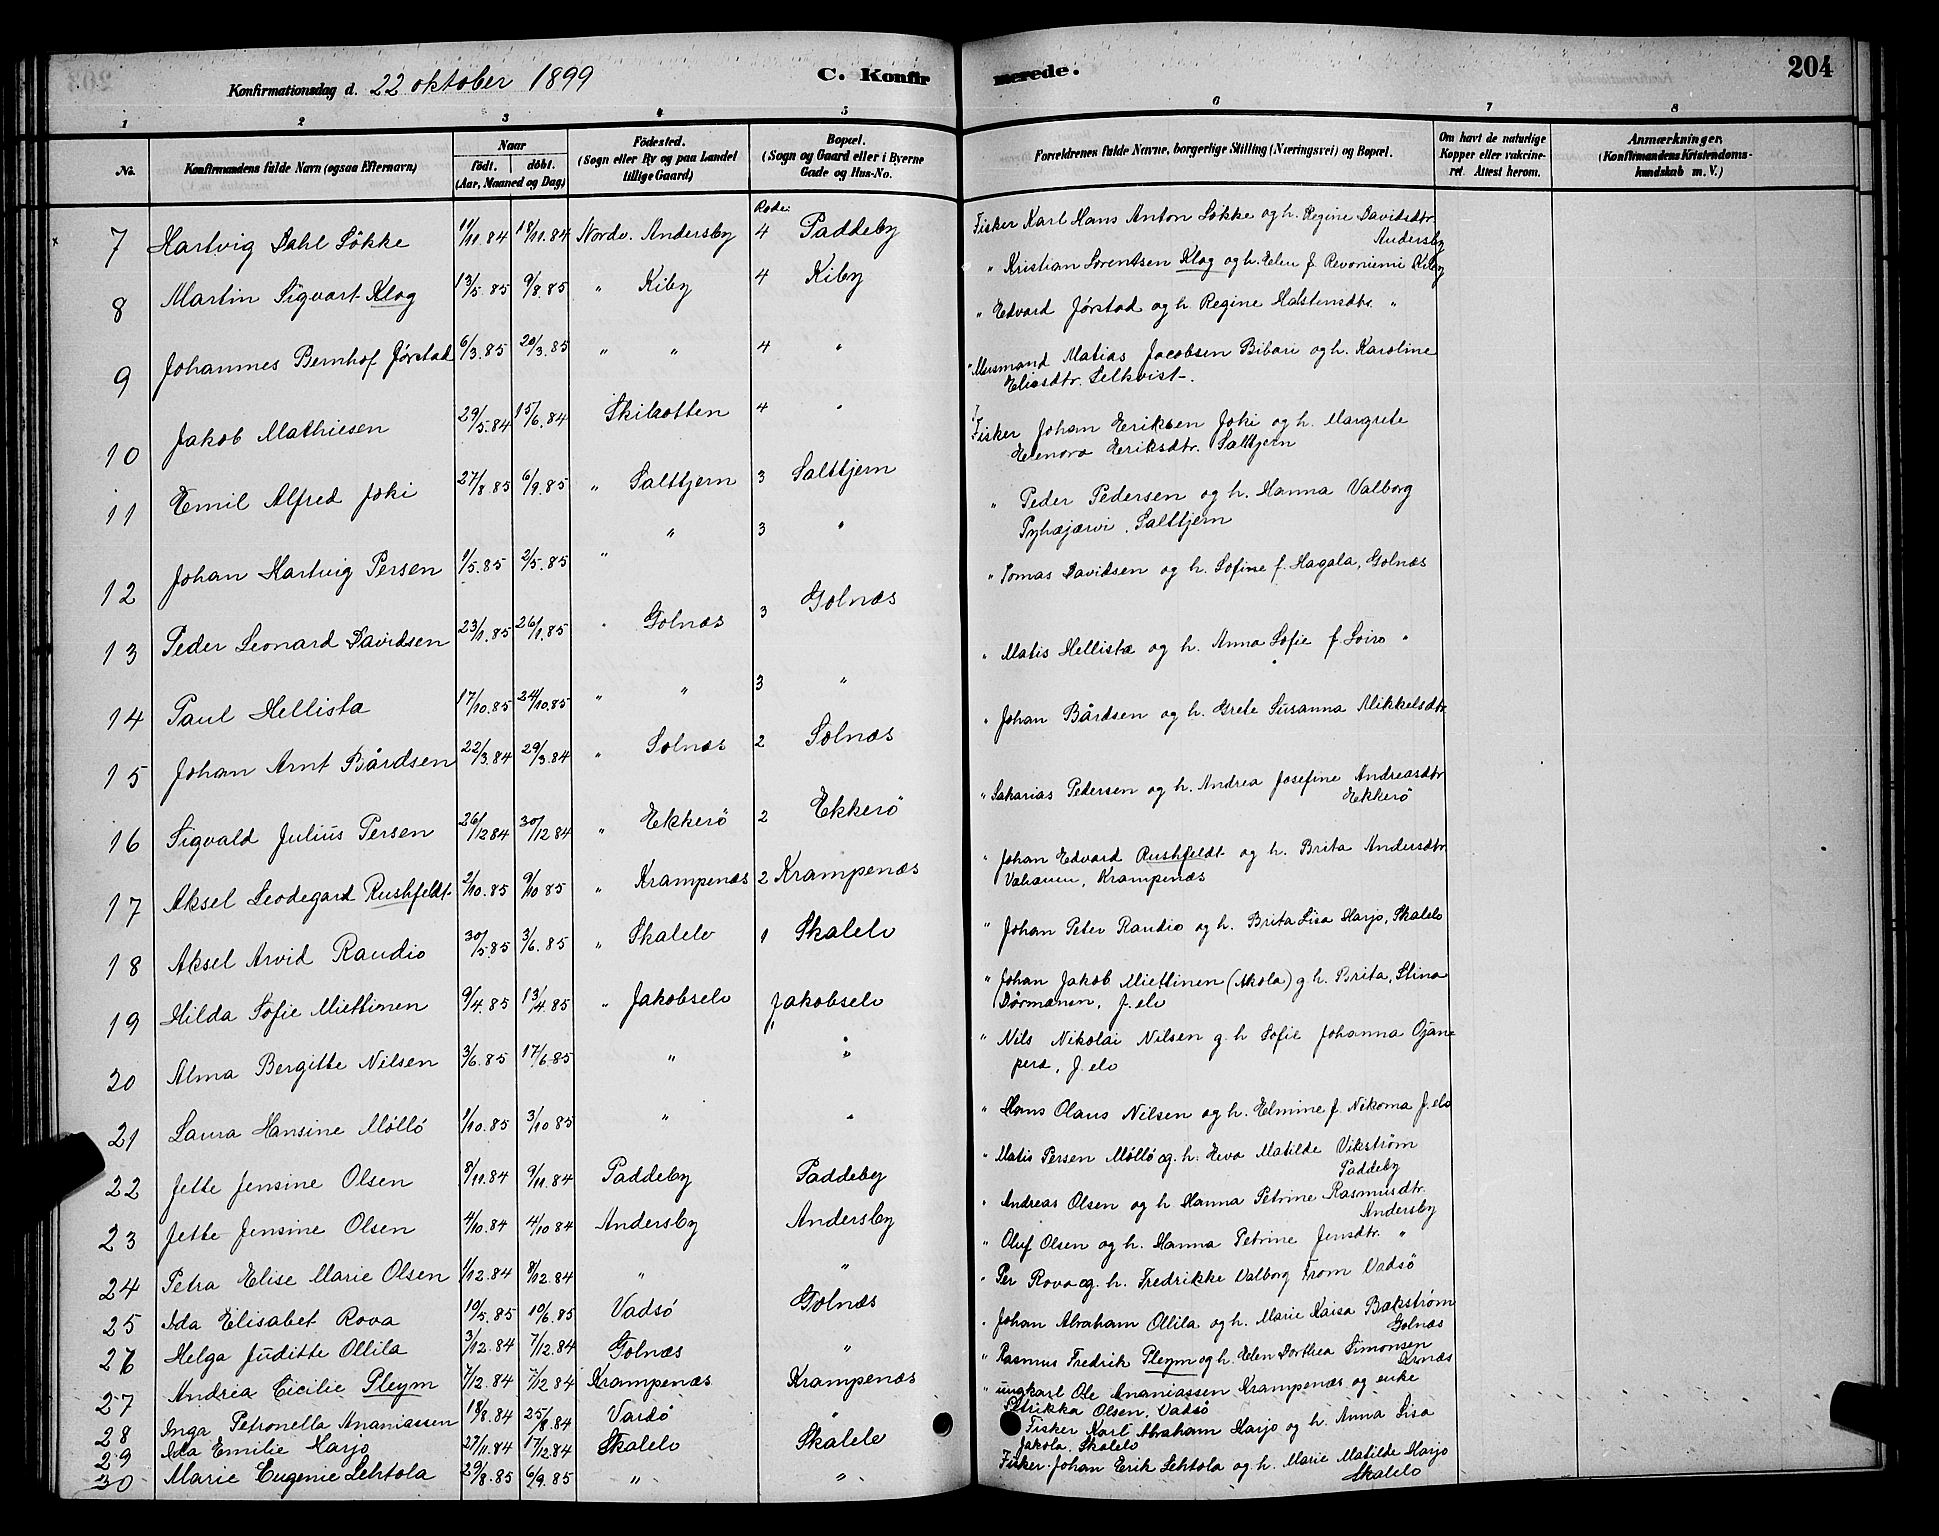 Konfirmationsdag d. 22 oktober 1899 C. Konfirmerede. 204
1 2 3 4 5 6 7 8
No. Konfirmandens fulde Navn (ogsaa Efternavn) Naar født. døbt. (Aar, Maaned og Dag) Fødested. (Sogn eller By og paa Landet tillige Gaard) Bopæl. (Sogn og Gaard eller i Byerne Gade og Hus-No. Forældrenes fulde Navne, borgerlige Stilling (Næringsvei) og Bopæl. Om havt de naturlige Kopper eller vakcineret. Attest herom. Anmærkninger. (Konfirmandens Kristendomskundskab m. V.)
Rode:
7 Hartvig Dahl Løkke 11/11.84 18/11.84 Nordv. Andersby 4 Paddeby Fisker Karl Hans Anton Løkke og h. Regine Davidsdtr.
Andersby
8 Martin Sigvart Klog 13/5.85 9/8.85 " Kiby 4 Kiby " Kristian Sørentsen Klog og h. Elen f. Revoniemi Kiby
9 Johannes Bernhof Jørstad 6/3.85 20/3.85 " " 4 " " Edvard Jørstad og h. Regine Halstensdtr. "
10 Jakob Mathiesen 29/5.84 15/6.84 Skikotten 4 " " Matias Jacobsen Bibari og h. Karoline
Eliasdtr. Selkvist.
11 Emil Alfred Joki 27/8.85 6/9.85 " Saltjern 3 Saltjern Fisker Johan Eriksen Joki og h. Margrete
Elenora Eriksdtr. Saltjern
12 Johan Hartvig Persen 1/5.85 2/5.85 " " 3 " " Peder Pedersen og h. Hanna Valborg
Pyhæjærvi. Saltjern
13 Peder Leonard Davidsen 23/1.85 26/1.85 " Golnæs 3 Golnæs " Tomas Davidsen og h. Sofine f. Hagala, Golnæs
14 Paul Hellista 17/10.85 24/10.85 " " 3 " " Matis Hellista og h. Anna Sofie f. Soiro "
15 Johan Arnt Bårdsen 22/3.84 29/3.84 " Solnæs 2 Solnæs " Johan Bårdsen og h. Grete Susanna Mikkelsdtr
16 Sigvald Julius Persen 26/12 84 30/12 84 " Ekkerø 2 Ekkerø " Sakarias Pedersen og h. Andrea Josefine Andreasdtr
Ekkerø
17 Aksel Leodegard Rushfeldt 2/10.85 9/10 85 " Krampenæs 2 Krampenæs " Johan Edvard Rushfeldt og h. Brita Andersdtr
Krampenæs
18 Aksel Arvid Raudio 30/5.85 3/6.85 " Skalelv 1 Skalelv " Johan Peter Raudio og h. Brita Lisa Harjo, Skalelv
19 Hilda Sofie Miettinen 9/4.85 13/4.85 " Jakobselv Jakobselv " Johan Jakob Miettinen (Akola) g h. Brita Stina
Dørmänen, J. elv
20 Alma Bergitte Nilsen 3/6.85 17/6.85 " " " Nils Nikolai Nilsen g. h Sofie Johanna Ojan=
pera, J. elv
21 Laura Hansine Møllø 1/10.85 3/10 85 " " " Hans Olaus Nilsen og h. Elmine f. Nikoma J. elv
22 Jette Jensine Olsen 8/11.84 9/11.84 Paddeby Paddeby " Matis Persen Møllø og h. Eva Matilde Vikstrøm
Paddeby
23 Jette Jensine Olsen 4/10.84 4/10 84 Andersby Andersby " Andreas Olsen og h Hanna Petrine Rasmusdtr.
Andersby
24 Petra Elise Marie Olsen 1/12.84 8/12.84 " " " Oluf Olsen og h. Hanna Petrine Jensdtr. "
25 Ida Elisabet Rova 10/5.85 10/6.85 Vadsø Golnæs " Per Rova og h. Fredrikke Valborg From Vadsø
26 Helga Juditte Ollila 3/12.84 7/12.84 Golnæs " " Johan Abraham Ollila og h. Marie Kaisa Bækstrøm
Golnæs
27 Andrea Cicilie Pleym 7/12.84 7/12 84 Krampenæs Krampenæs " Rasmus Fredrik Pleym og h. Elen Dorthea Simonsen
28 Inga Petronella Ananiassen 18/8.84 25/8.84 Vardø " " ungkarl Ole Ananiassen Krampenæs og enke
Petrikka Olsen, Vadsø
29 Ida Emilie Harjo 27/11.84 17/12 84 Skalelv Skalelv Fisker Karl Abraham Harjo og h. Anna Lisa
Jakola, Skalelv
30 Marie Eugenie Lehtola 29/8.85 6/9.85 " " Fisker Johan Erik Lehtola og h. Marie Matilde Harjo
Skalelv